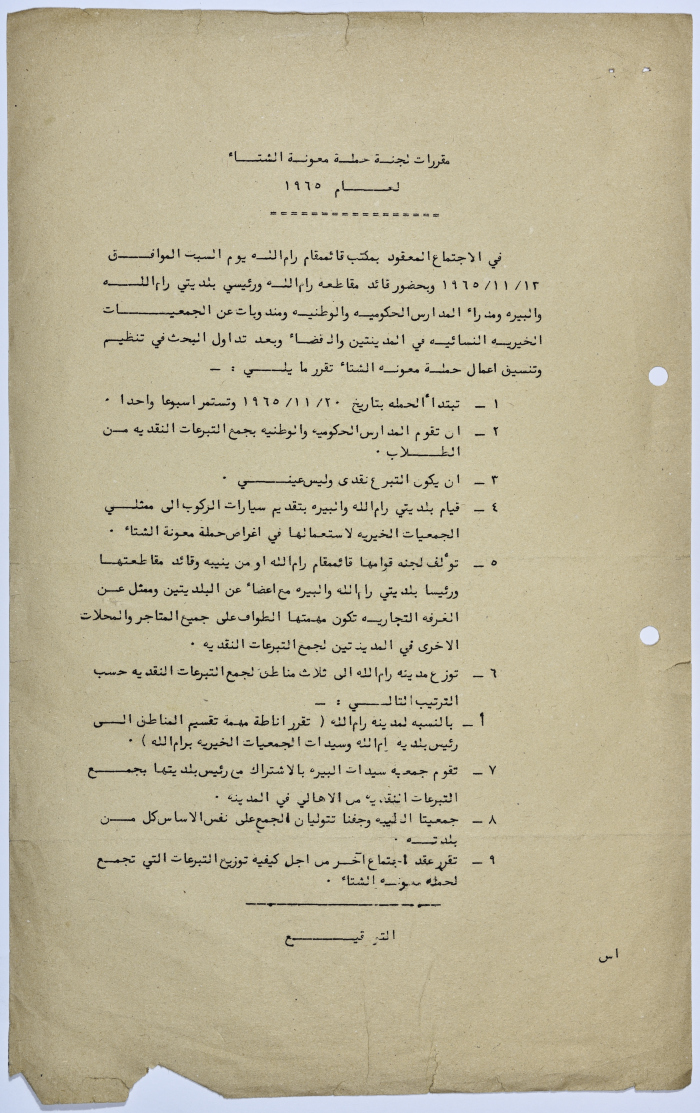 مقررات لجنة حملة معونة الشتاء
لعام ١٩٦٥
=================
في الاجتماع المعقود بمكتب قائممقام رام الله يوم السبت الموافق
١٩٦٥/١١/١٣ وبحضور قائد مقاطعه رام الله ورئيسي بلديتي رام الله
والبيره ومدراء المدارس الحكوميه والوطنيه ومندوبات عن الجمعيات
الخيريه النسائيه في المدينتين والقضاء وبعد تداول البحث في تنظيم
وتنسيق اعمال حملة معونه الشتاء تقرر ما يلي : ـ
١ ـ تبتدأ الحمله بتاريخ ١٩٦٥/١١/٢٠ وتستمر اسبوعا واحدا .
٢ ـ ان تقوم المدارس الحكوميه والوطنيه بجمع التبرعات النقديه من
الطلاب .
٣ ـ ان يكون التبرع نقدى وليس عيني .
٤ ـ قيام بلديتي رام الله والبيره بتقديم سيارات الركوب الى ممثلي
الجمعيات الخيريه لاستعمالها في اغراض حملة معونة الشتاء .
٥ ـ تؤلف لجنه قوامها قائممقام رام الله او من ينيبه وقائد مقاطعتها
ورئيسا بلديتي رام الله والبيره مع اعضاء عن البلديتين وممثل عن
الغرفه التجاريه تكون مهمتها الطواف على جميع المتاجر والمحلات
الاخرى في المدينتين لجمع التبرعات النقديه .
٦ ـ توزع مدينه رام الله الى ثلاث مناطق لجمع التبرعات النقديه حسب
الترتيب التالي : ـ
أ ـ بالنسبه لمدينه رام الله ( تقرر اناطة مهمة تقسيم المناطق الى
رئيس بلديه رام الله وسيدات الجمعيات الخيريه برام الله ) .
٧ ـ تقوم جمعيه سيدات البيره بالاشتراك من رئيس بلديتها بجمع
التبرعات النقديه من الاهالي في المدينه .
٨ ـ جمعيتا الطيبه وجفنا تتوليان الجمع على نفس الاساس كل من
بلدته .
٩ ـ تقرر عقد اجتماع آخر من اجل كيفيه توزيع التبرعات التي تجمع
لحمله معونه الشتاء .
التوقيع
اس